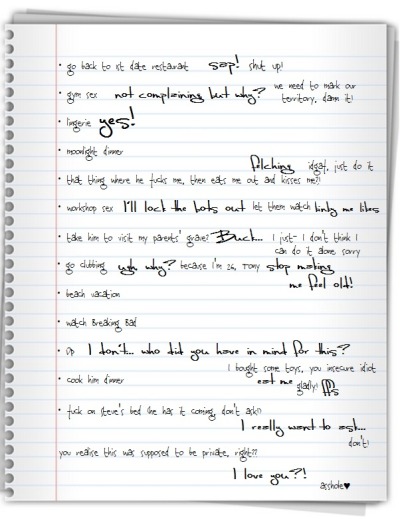 • go back to 1st date restaurant sap! shut up!
• gym sex not complaining but why? we need to mark our territory, damn it!
• lingerie yes!
• moonlight dinner
felching idgaf, just do it
• that thing where he fucks me, then eats me out and kisses me?!
• workshop sex I'll lock the bots out let them watch kinky me likes
• take him to visit my parents' grave? Buck... I just- I don't think I can do it alone sorry
• go clubbing ugh why? because I'm 26, Tony stop making me feel old!
• beach vacation
• watch Breaking Bad
• DP I don't... who did you have in mind for this?
I bought some toys, you insecure idiot
• cook him dinner eat me gladly! ffs
• fuck on Steve's bed (he has it coming, don't ask!)
I really want to ask...
don't!
you realise this was supposed to be private, right??
I love you?!
asshole♥